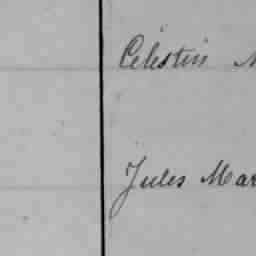 Célestin
Jules Mar